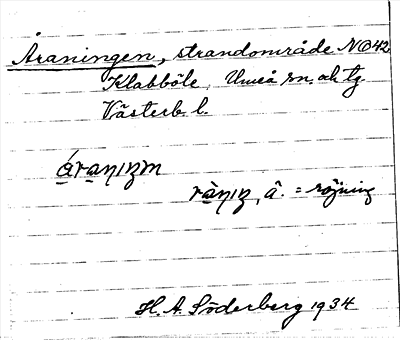 Åraningen, strandområde NO42
Klabböle, Umeå sn. ok tg
Västerb. l.
áranıŋm
rànıŋ, â. = röjning
H. A. Söderberg 1934